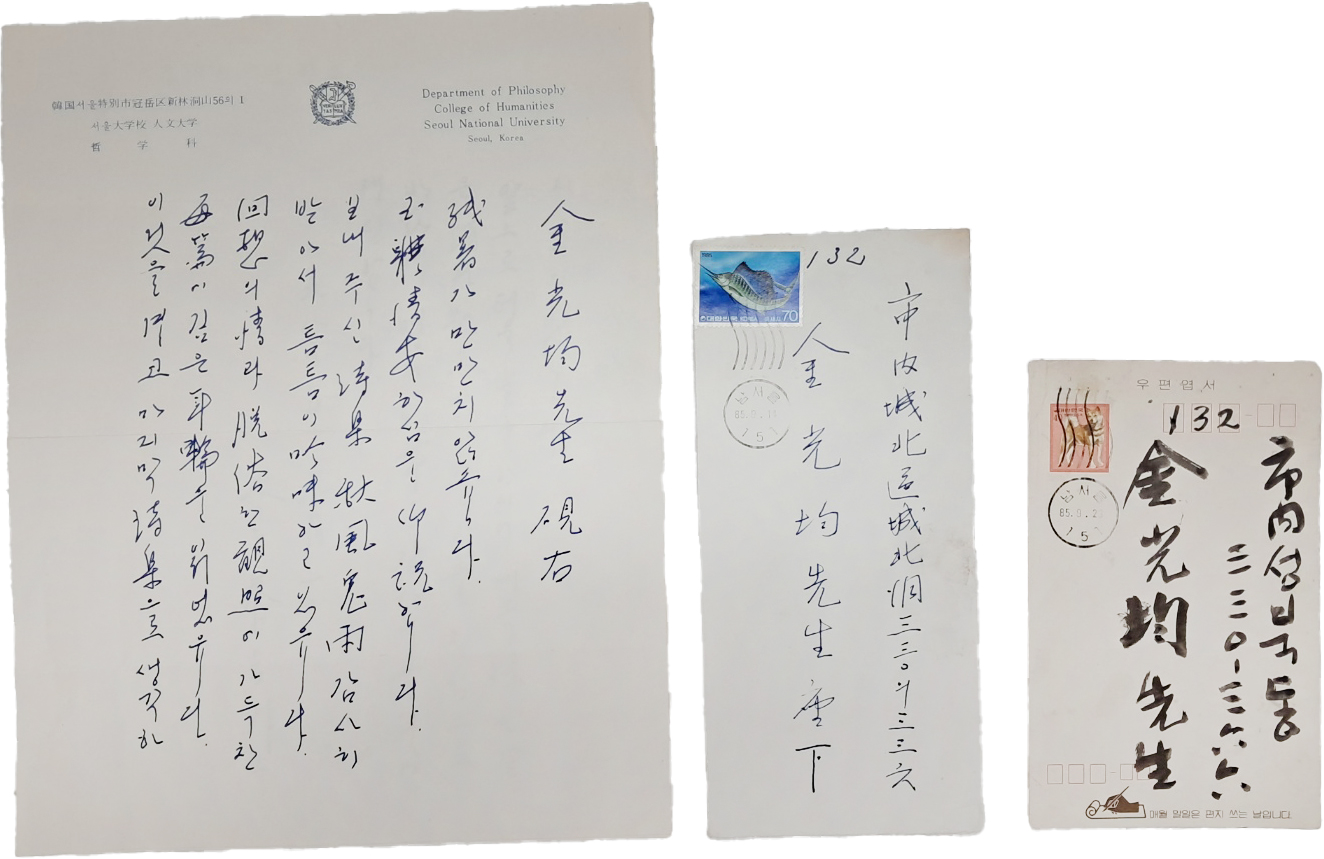 韓国서울特別市冠岳区新林洞山56의 1
서울大学校·人文大学
哲 学 科
Department of Philosophy
College of Humanities
Seoul National University
Seoul, Korea
金光均先生 硯右
殘暑가 만만치 않읍니다.
玉體 淸安하심을 仰祝합니다.
보내주신 詩集 秋風鬼雨 감사히
받아서 틈틈이 吟味하고 있읍니다.
回想의 情과 脫俗한 觀照이 가득찬
每篇이 깊은 있읍니다.
이것을 마지막 詩集으로 생각하
132
市内城北區城北洞三三○의三三六
金光均先生座下
70
남서울
85.9.
우편엽서
132
市內성북
三三○-三六六
金光均先生
남서울
85.9.2
매월 말일은 편지 쓰는 날입니다.